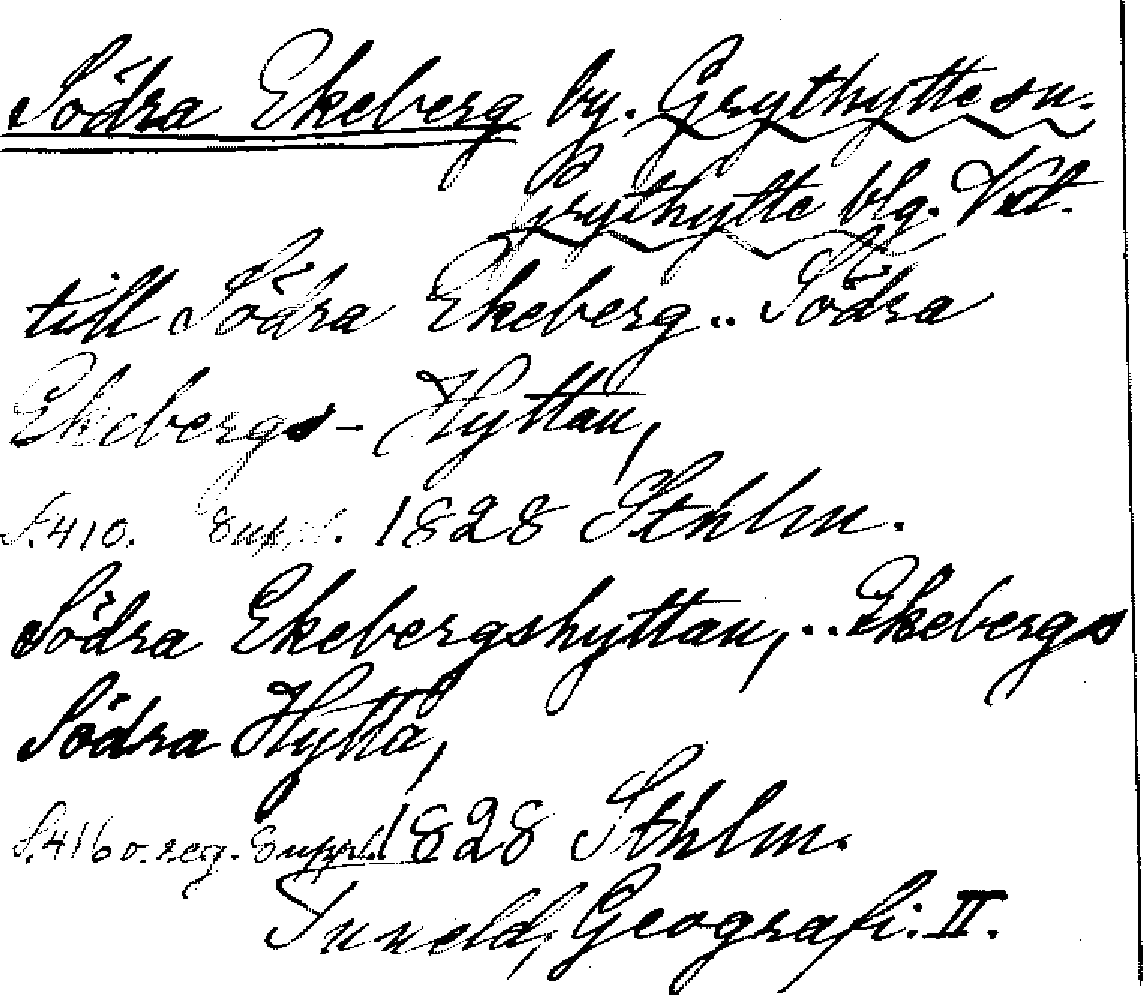 Södra Ekeberg by. Grythytte sn.
Grythytte blg. Vstl.
till Södra Ekeberg.. Södra
Ekebergs-Hyttan,
S.410. Suppl. 1828 Sthlm.
Södra Ekebergshyttan,.. Ekebergs
Södra Hytta,
S.416 o. reg. Suppl. 1828 Sthlm.
Tuneld, Geografi. II.